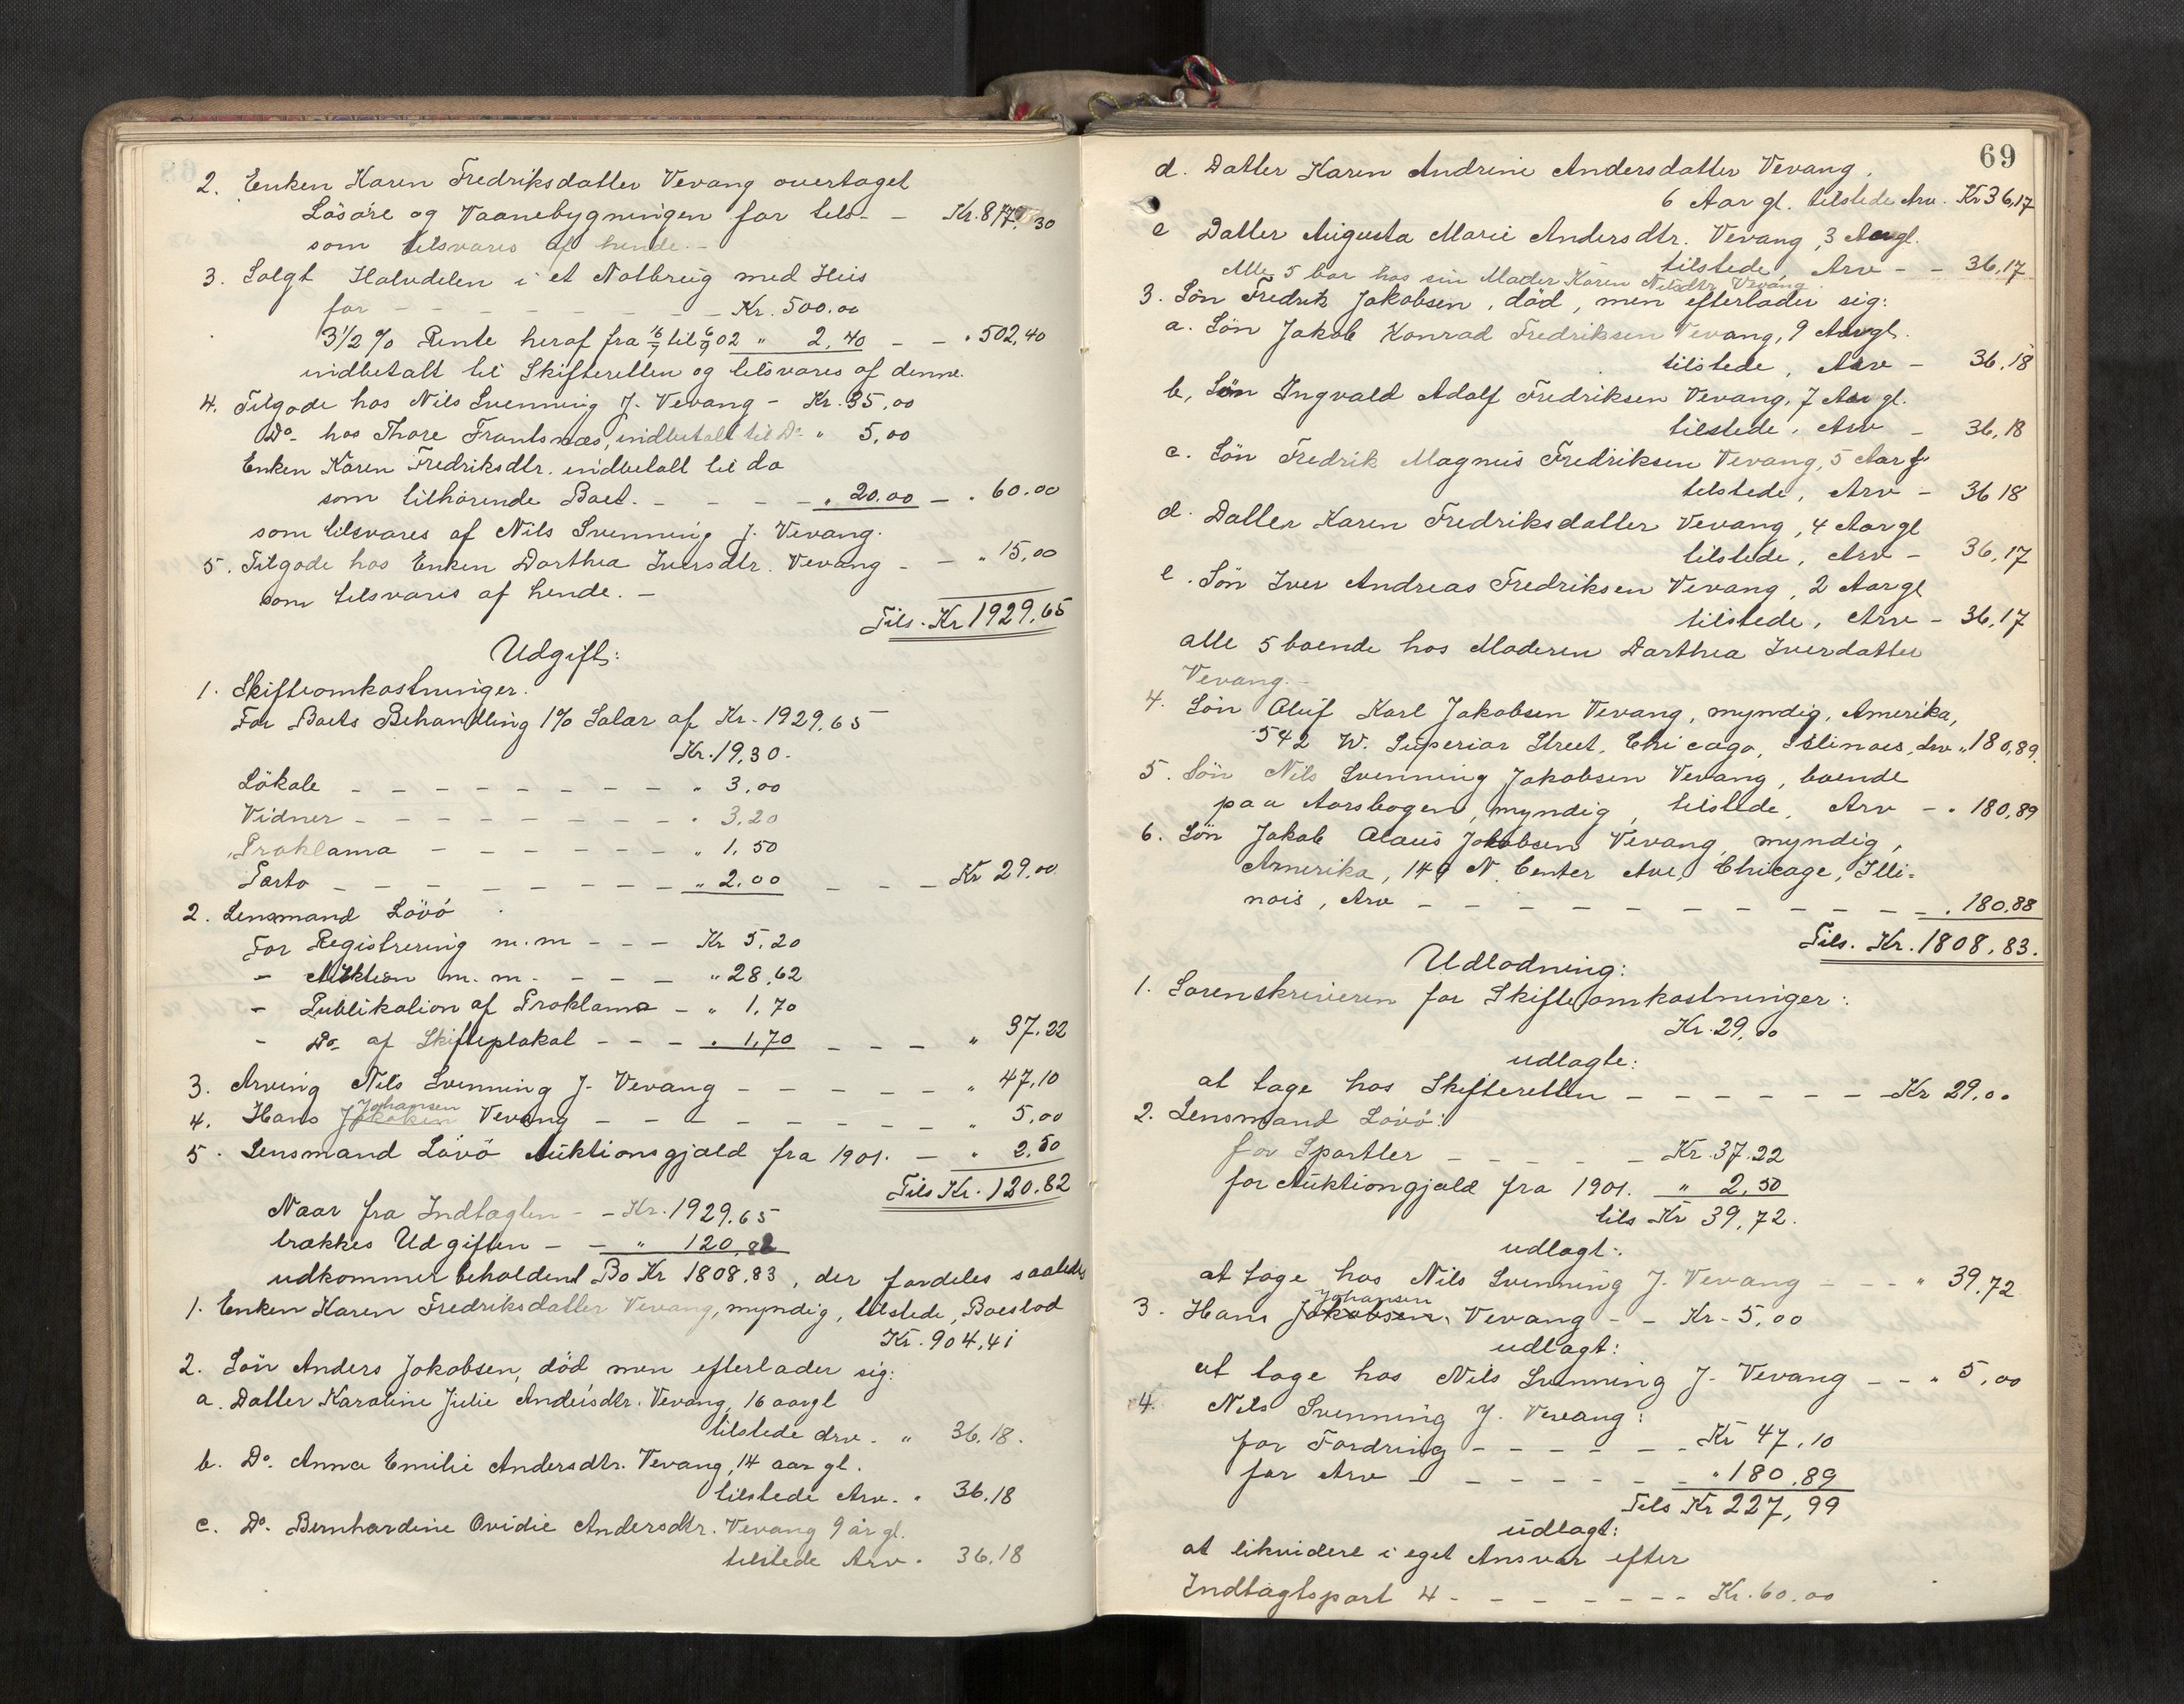 2. Enken Karen Fredriksdatter Vevang overtaget
Lösöre og Vaanebygningen for tils - - Kr. 877,30
som tilsvares af hende. -
3. Solgt Halvdelen i et Notbrug med Hus
for - - - - - - - Kr. 500.00
3 1/2 % Rente heraf fra 16/7 til 6/9 02 " 2,40 - - " 502,40
indbetalt til Skifteretten og tilsvares af denne.
4. Tilgode hos Nils Svenning J. Vevang - Kr. 35,00
Do - hos Thore Frantsnæs, indbetalt til Do " 5,00
Enken Karen Fredriksdtr. indbetalt til do
som tilhörende Boet. - - - - " 20.00 - " 60.00
som tilsvares af Nils Svenning J. Vevang.
5. Tilgode hos Enken Dorthea Iversdtr. Vevang - - " 15,00
som tilsvares af hende. -
Tils. Kr 1929,65
Udgift:
1. Skifteomkostninger.
For Boets Behandling 1% Salær af Kr. 1929,65
Kr. 19,30.
Lökale - - - - - - - - " 3,00
Vidner - - - - - - - - " 3,20
Proklama - - - - - - " 1,50
Porto - - - - - - - - " 2.00 - - - Kr 29.00
2. Lensmand Lövö
For Registrering m.m - - - Kr 5,20
- Auktion m.m. - - - - " 28,62
- Publikation af Proklama - " 1,70
- Do - af Skifteplakat - - - " 1,70 - - - " 37.22
3. Arving Nils Svenning J. Vevang - - - - - " 47,10
Johansen
4. Hans Vevang - - - - - - - - " 5,00
5. Lensmand Lövö Auktionsgjæld fra 1901. - " 2,50
Tils Kr. 120.82
Naar fra Indtægten - - Kr. 1929,65
trækkes Udgiften - - " 120,82
udkommer beholdent Bo Kr 1808,83, der fordeles saaledes
1. Enken Karen Fredriksdatter Vevang, myndig, tilstede, Boeslod
Kr. 904,41
2. Sön Anders Jakobsen, död men efterlader sig:
a. Datter Karoline Julie Andersdtr. Vevang, 16 aargl
tilstede Arv. " 36,18.
b. Do. Anna Emilie Andersdtr. Vevang, 14 aar gl.
tilstede Arv. " 36,18
c. Do. Bernhardine Ovidie Andersdtr. Vevang 9 år gl.
tilstede Arv. 36,18
69
d. Datter Karen Andrine Andersdatter Vevang.
6 Aar gl. tilstede Arv. Kr 36,17
e Datter Augusta Marie Andersdtr. Vevang, 3 Aargl.
tilstede, Arv - - 36,17
Alle 5 bor hos sin Moder Karen Nilsdtr. Vevang.
3. Sön Fredrik Jakobsen, död, men efterlader sig:
a. Sön Jakob Konrad Fredriksen Vevang, 9 Aargl.
tilstede, Arv - 36,18
b, Sön Ingvald Adolf Fredriksen Vevang, 7 Aar gl.
tilstede, Arv - 36,18
c. Sön Fredrik Magnus Fredriksen Vevang, 5 Aar g
tilstede, Arv - 36 18
d. Datter Karen Fredriksdatter Vevang, 4 Aargl
tilstede, Arv - 36,17
e. Sön Iver Andreas Fredriksen Vevang, 2 Aargl
tilstede, Arv - 36,17
alle 5 boende hos Moderen Dorthea Iverdatter
Vevang. -
4. Sön Oluf Karl Jakobsen Vevang, myndig, Amerika,
542 W. Superior Street, Chicago, Illinois, Arv " 180,89.
5. Sön Nils Svenning Jakobsen Vevang, boende
paa Aarsbogen, myndig, tilstede, Arv - " 180,89
6. Sön Jakob Olaus Jakobsen Vevang, myndig,
Amerika, 149 N. Center Ave, Chicage, Illi-
nois, Arv - - - - - - - - - - - " 180,88
Tils. Kr. 1808,83.
Udlodning:
1. Sorenskriveren for Skifteomkostninger:
Kr. 29,00
udlagte:
at tage hos Skifteretten - - - - - - Kr 29,00
2. Lensmand Lövö:
for Sportler - - - - - Kr. 37.22
for Auktiongjæld fra 1901. " 2,50
tils Kr 39,72.
udlagt:
at tage hos Nils Svenning J. Vevang - - - " 39,72
Johansen
3. Hans Jakobsen, Vevang - - Kr. 5,00
udlagt:
at tage hos Nils Svenning J. Vevang - - " 5,00
4. Nils Svenning J. Vevang:
for Fordring - - - - - Kr 47,10
for Arv - - - - - - " 180,89
Tils Kr 227,99
udlagt:
at likvidere i eget Ansvar efter
Indtægtspost 4 - - - - - - - Kr. 60.00